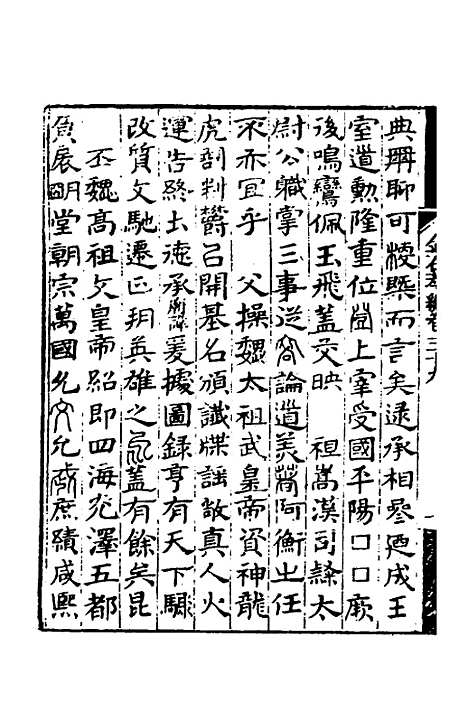 金石萃編卷三十九 一
典冊聊可梗槩而言矣逮承相參廼成王
室道勳隆重位登上宰受國平陽□□厥
後鳴鸞佩玉飛蓋交映　祖嵩漢司隸太
尉公職掌三事從容論道美著阿衡之任
不亦宜乎　父操魏太祖武皇帝資神龍
虎剖判欝召開基名頒讖牒謡敘真人火
運告終土德承爰據圖錄享有天下驅
改質文馳遷正朔英雄之氣蓋有餘矣昆
丕魏高祖文皇帝紹即四海光澤五都
負扆明堂朝宗萬國允文允武庶績咸熙